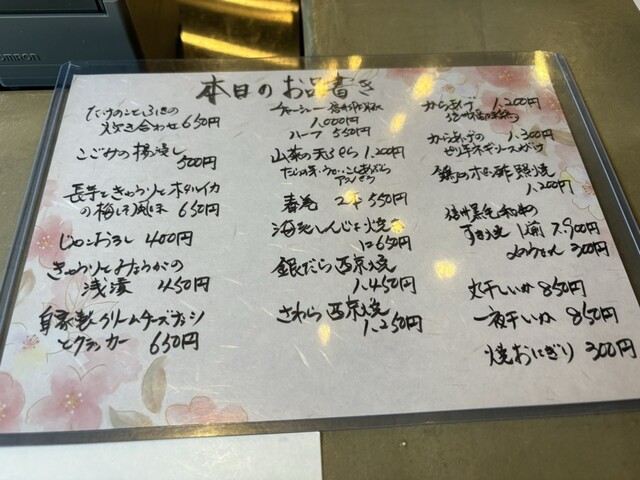 本日のお品書き
たけのことふきの
炊き合わせ 650円
こごみの揚浸し
500円
長芋ときゅうりとホタルイカ
の梅しそ風味 650円
じゃこおろし 400円
きゅうりとみょうがの
浅漬 450円
自家製クリームチーズ
とクラッカー 650円
チャーシュー
1,000円
ハーフ 550円
山菜の天ぷら 1,200円
たらの芽・うるい・こしあぶら
春巻 2本 550円
海老しんじょ焼き
650円
銀だら西京焼
1,450円
さわら西京焼
1,250円
からあげ 1,200円
からあげの 1,300円
ネギソースがけ
鶏のポン酢照焼
1,200円
信州黒毛和牛の
すき焼 1人前 2,900円
300円
丸干しいか 850円
一夜干しいか 850円
焼おにぎり 300円